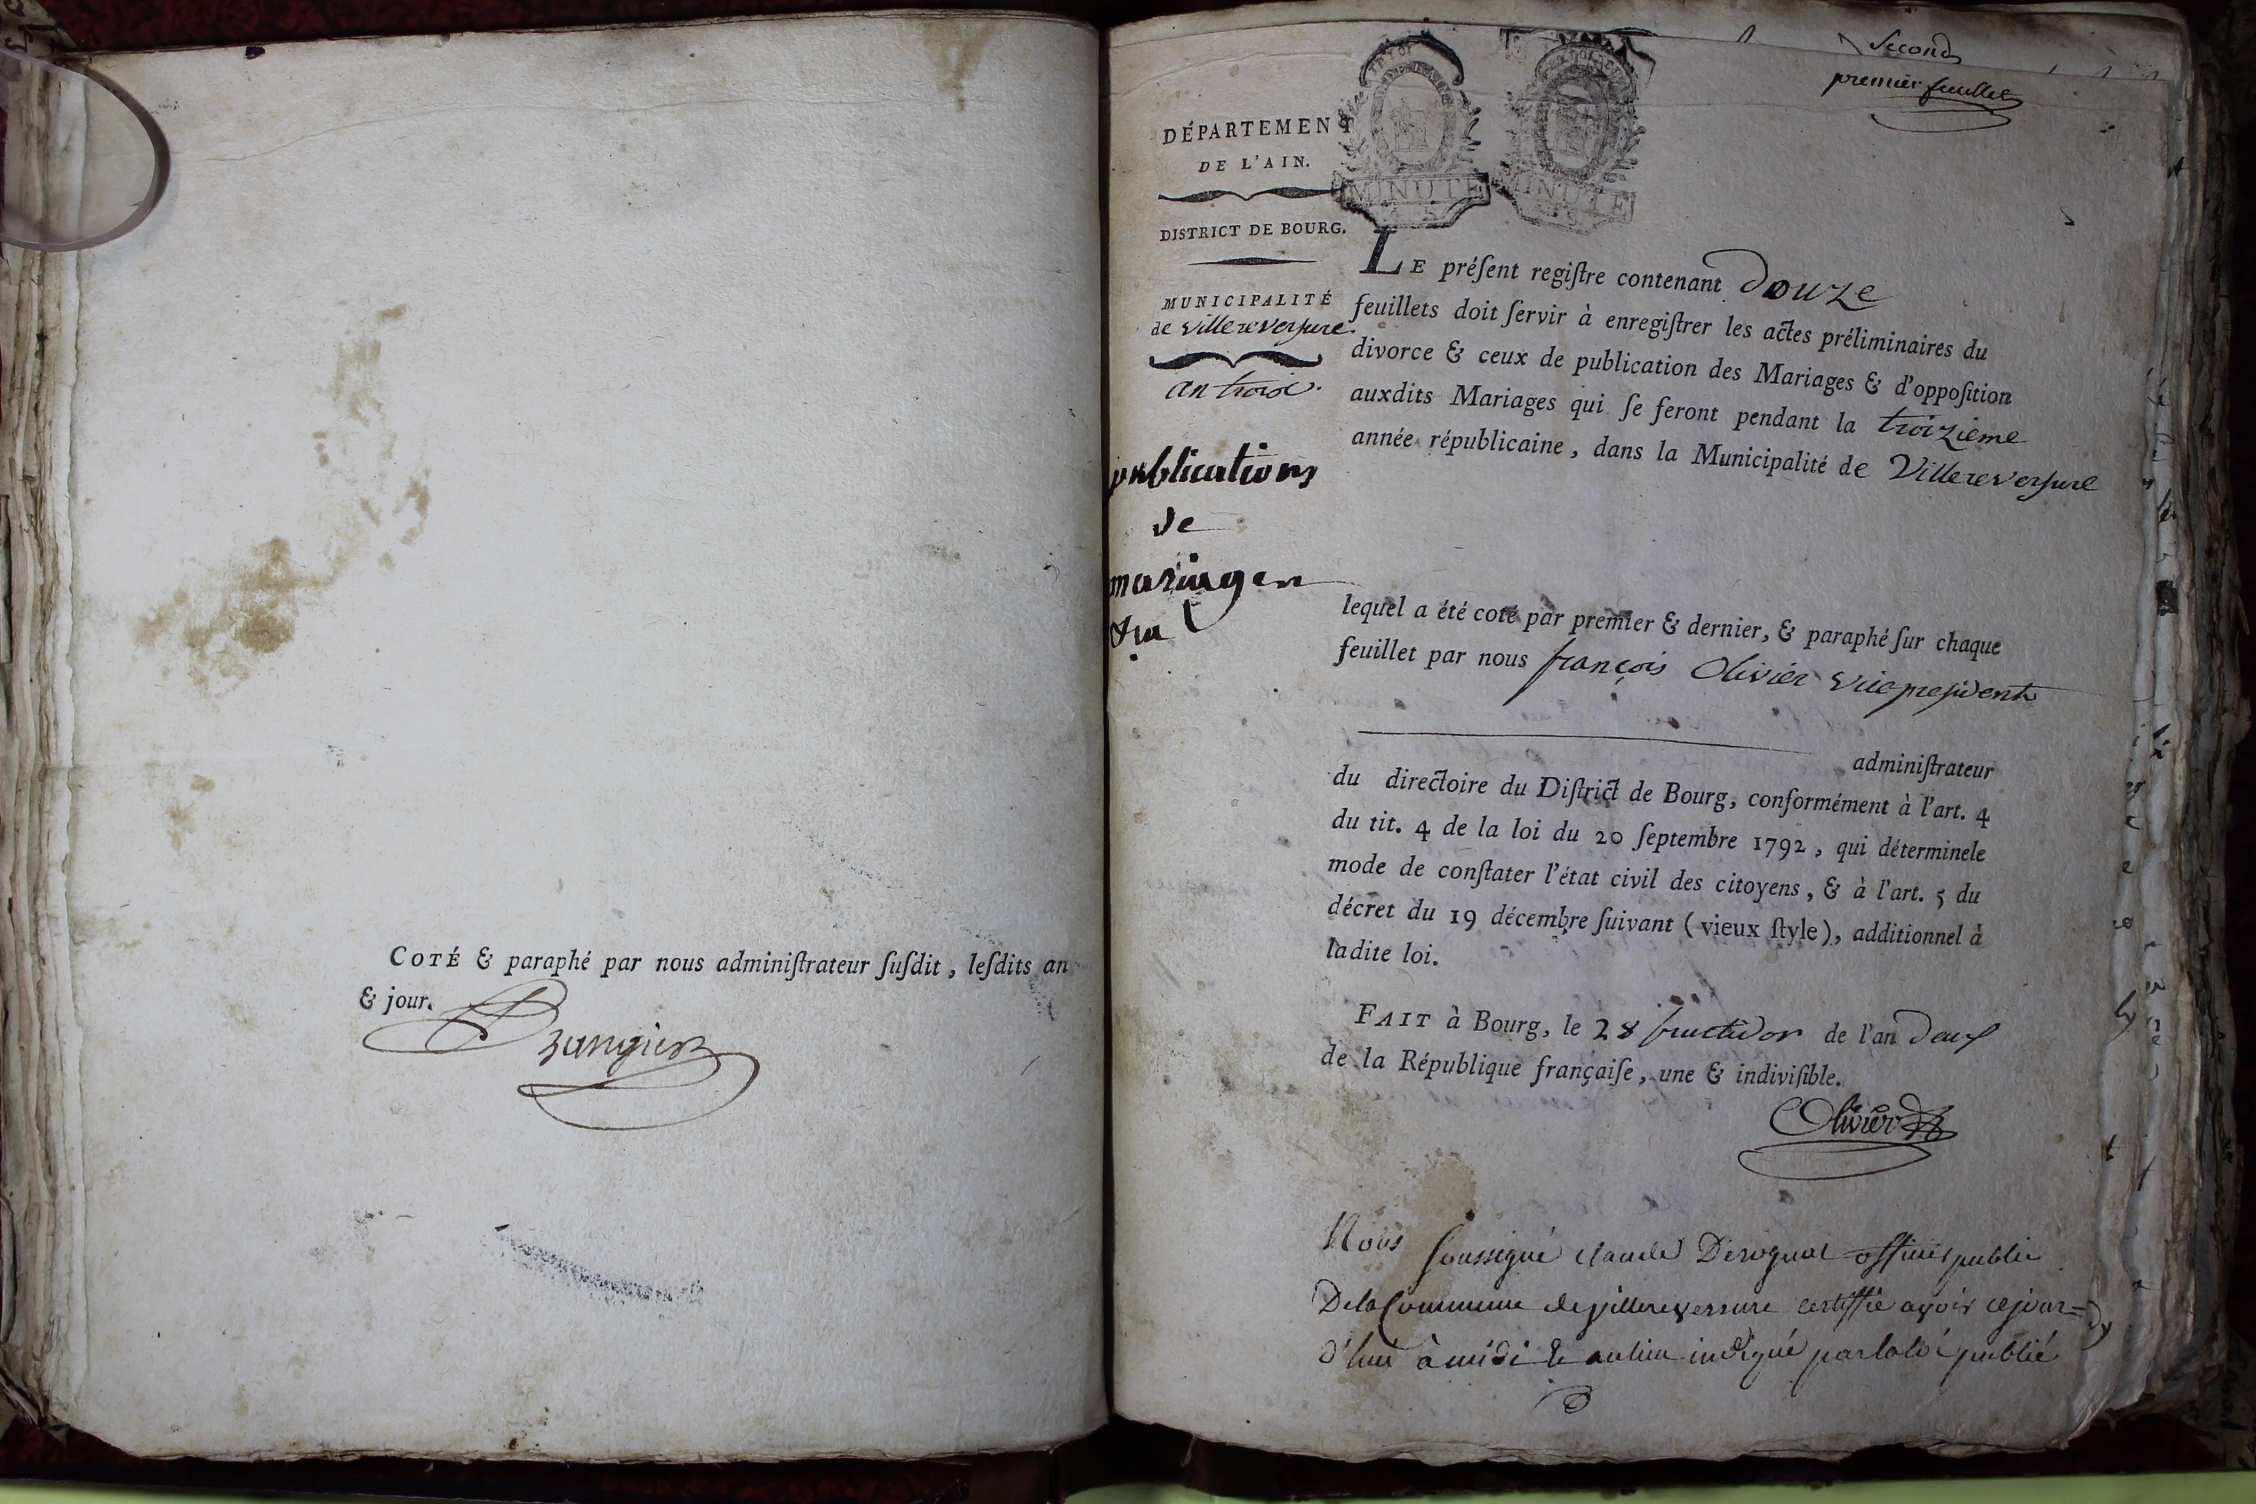 COTÉ & paraphé par nous adminiſtrateur ſuſdit, leſdits an
& jour.
Second
premier feuillet
DÉPARTEMENT
DE L'AIN.
MINUTE
MINUTE
DISTRICT DE BOURG.
MUNICIPALITÉ
de villereversure
an trois.
publications
de
mariages
LE préſent regiſtre contenant Douze
feuillets doit ſervir à enregiſtrer les actes préliminaires du
divorce & ceux de publication des Mariages & d'oppoſition
auxdits Mariages qui ſe feront pendant la troizieme
année républicaine, dans la Municipalité de Villereversure
lequel a été coté par premier & dernier, & paraphé ſur chaque
feuillet par nous françois Olivier vicepresident
adminiſtrateur
du directoire du Diſtrict de Bourg, conformément à l'art. 4
du tit. 4 de la loi du 20 ſeptembre 1792, qui déterminele
mode de conſtater l'état civil des citoyens, & à l'art. 5 du
décret du 19 décembre ſuivant (vieux ſtyle), additionnel à
ladite loi.
FAIT à Bourg, le 28 fructidor de l'an Deux
de la République françaiſe, une & indiviſible.
Olivier
Nous soussigné claude officier public
De la Commune de villereversure certiffie avoir cejour=
d'hui à midi & au lieu indiqué par la loi publié